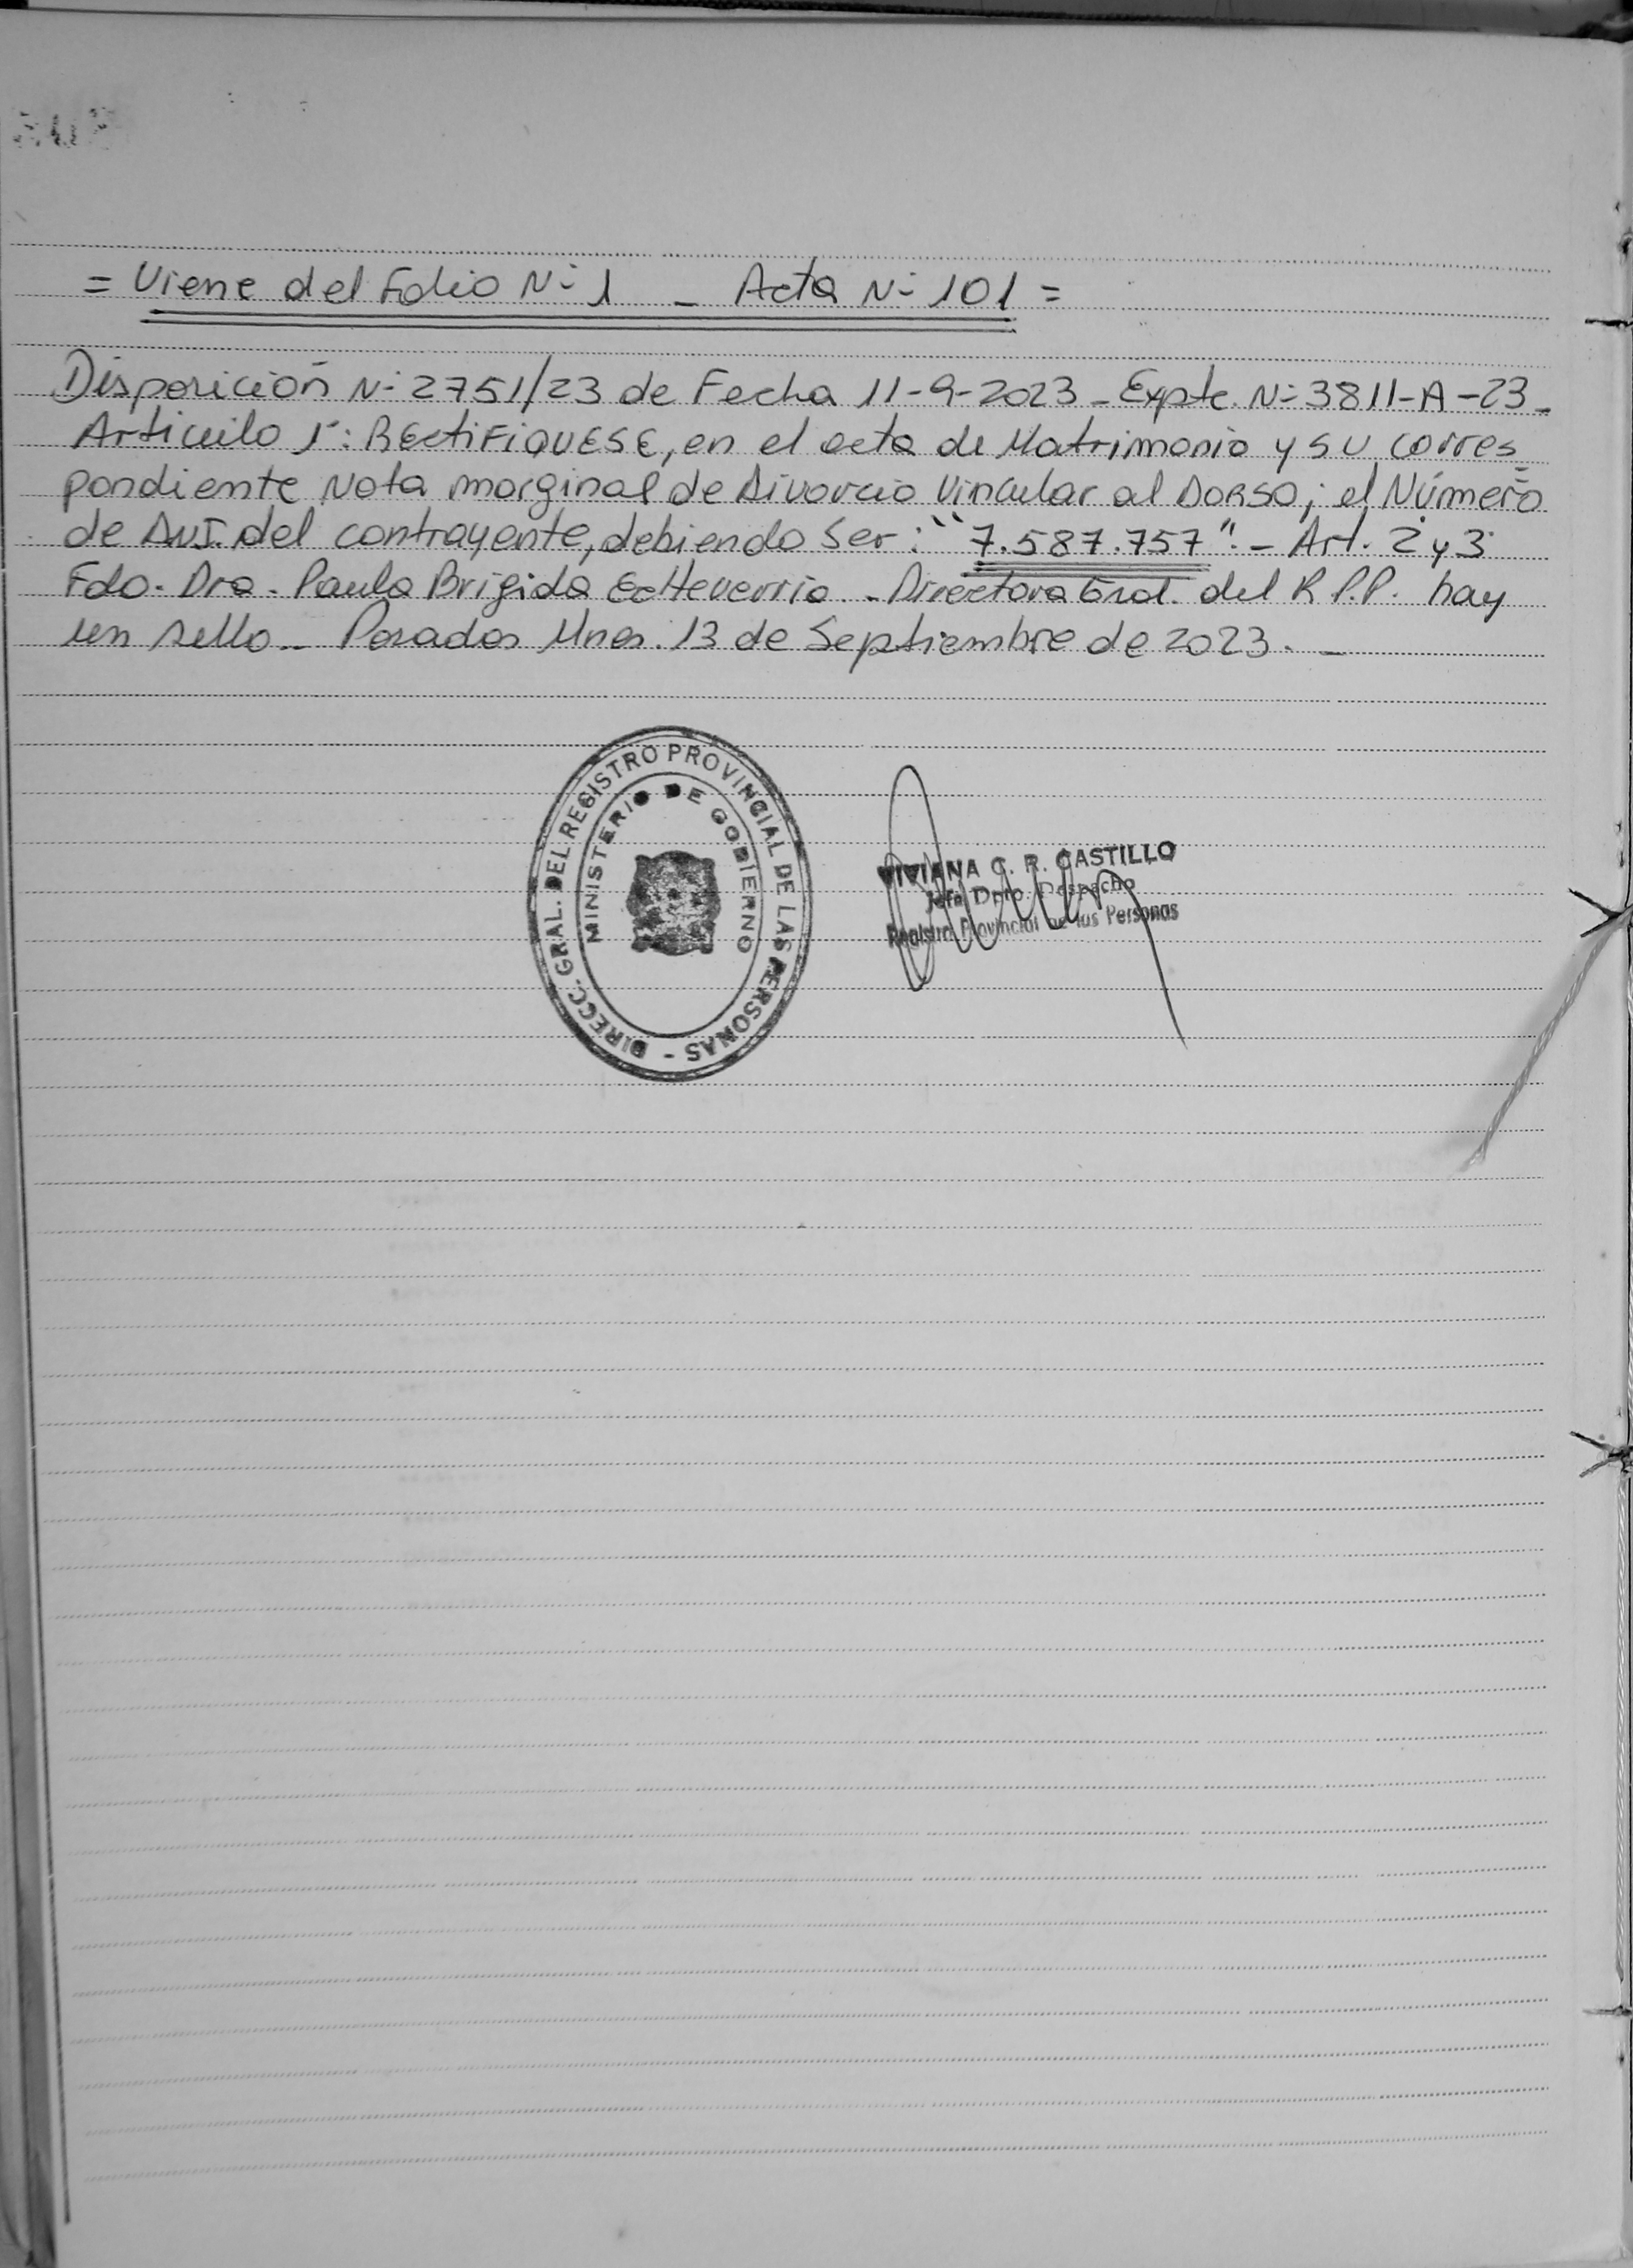 = Viene del Folio N° 1 - Acta N° 101 =
Disposición N° 2751/23 de Fecha 11-9-2023 - Expte. N° 3811-A-23 -
Articulo 1°: RECTIFIQUESE, en el acta de Matrimonio y su corres
pondiente Nota marginal de Divorcio Vincular al DORSO; el Número
de D.N.I. del contrayente, debiendo ser: "7.587.757". - Art. 2° y 3°
Fdo. Dra. Paula Brigida Echeverria - Directora Gral. del R.P.P. hay
un sello - Posadas Mnes. 13 de Septiembre de 2023. -
DIRECC. GRAL. DEL REGISTRO PROVINCIAL DE LAS PERSONAS -
MINISTERIO DE GOBIERNO
VIVIANA C. R. CASTILLO
Jefe Dpto. Despacho
Registro Provincial de las Personas